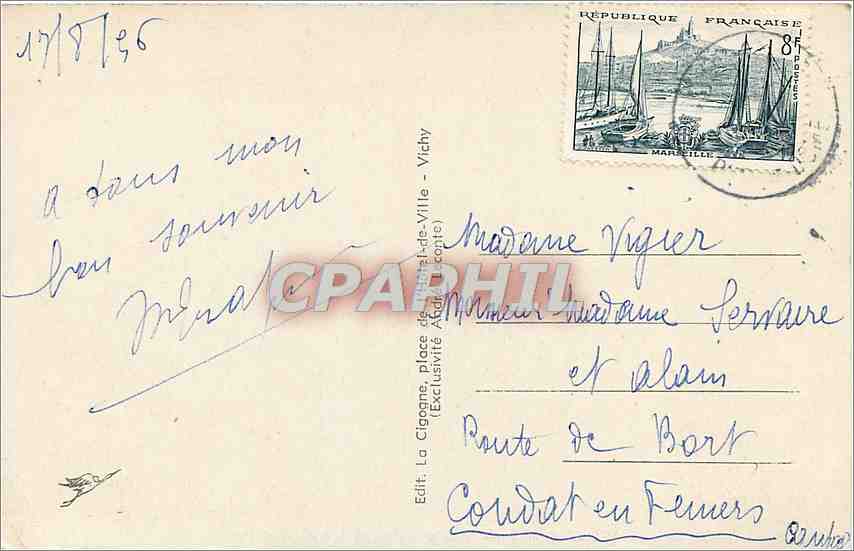 17/8/56
RÉPUBLIQUE FRANÇAISE
8F
POSTES
MARSEILLE
a tous mon
bon souvenir
Edit. La Cigogne, place de l'Hôtel-de-Ville - Vichy
(Exclusivité André Leconte)
CPAPHIL
Madame Vigier
Monsieur Madame Servaire
et alain
Route de Bort
Condat en Feniers